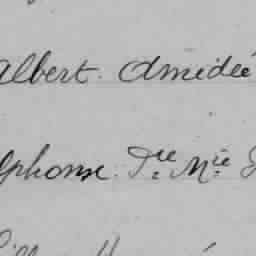 Albert. Amédée
lphonse. Pre Mie